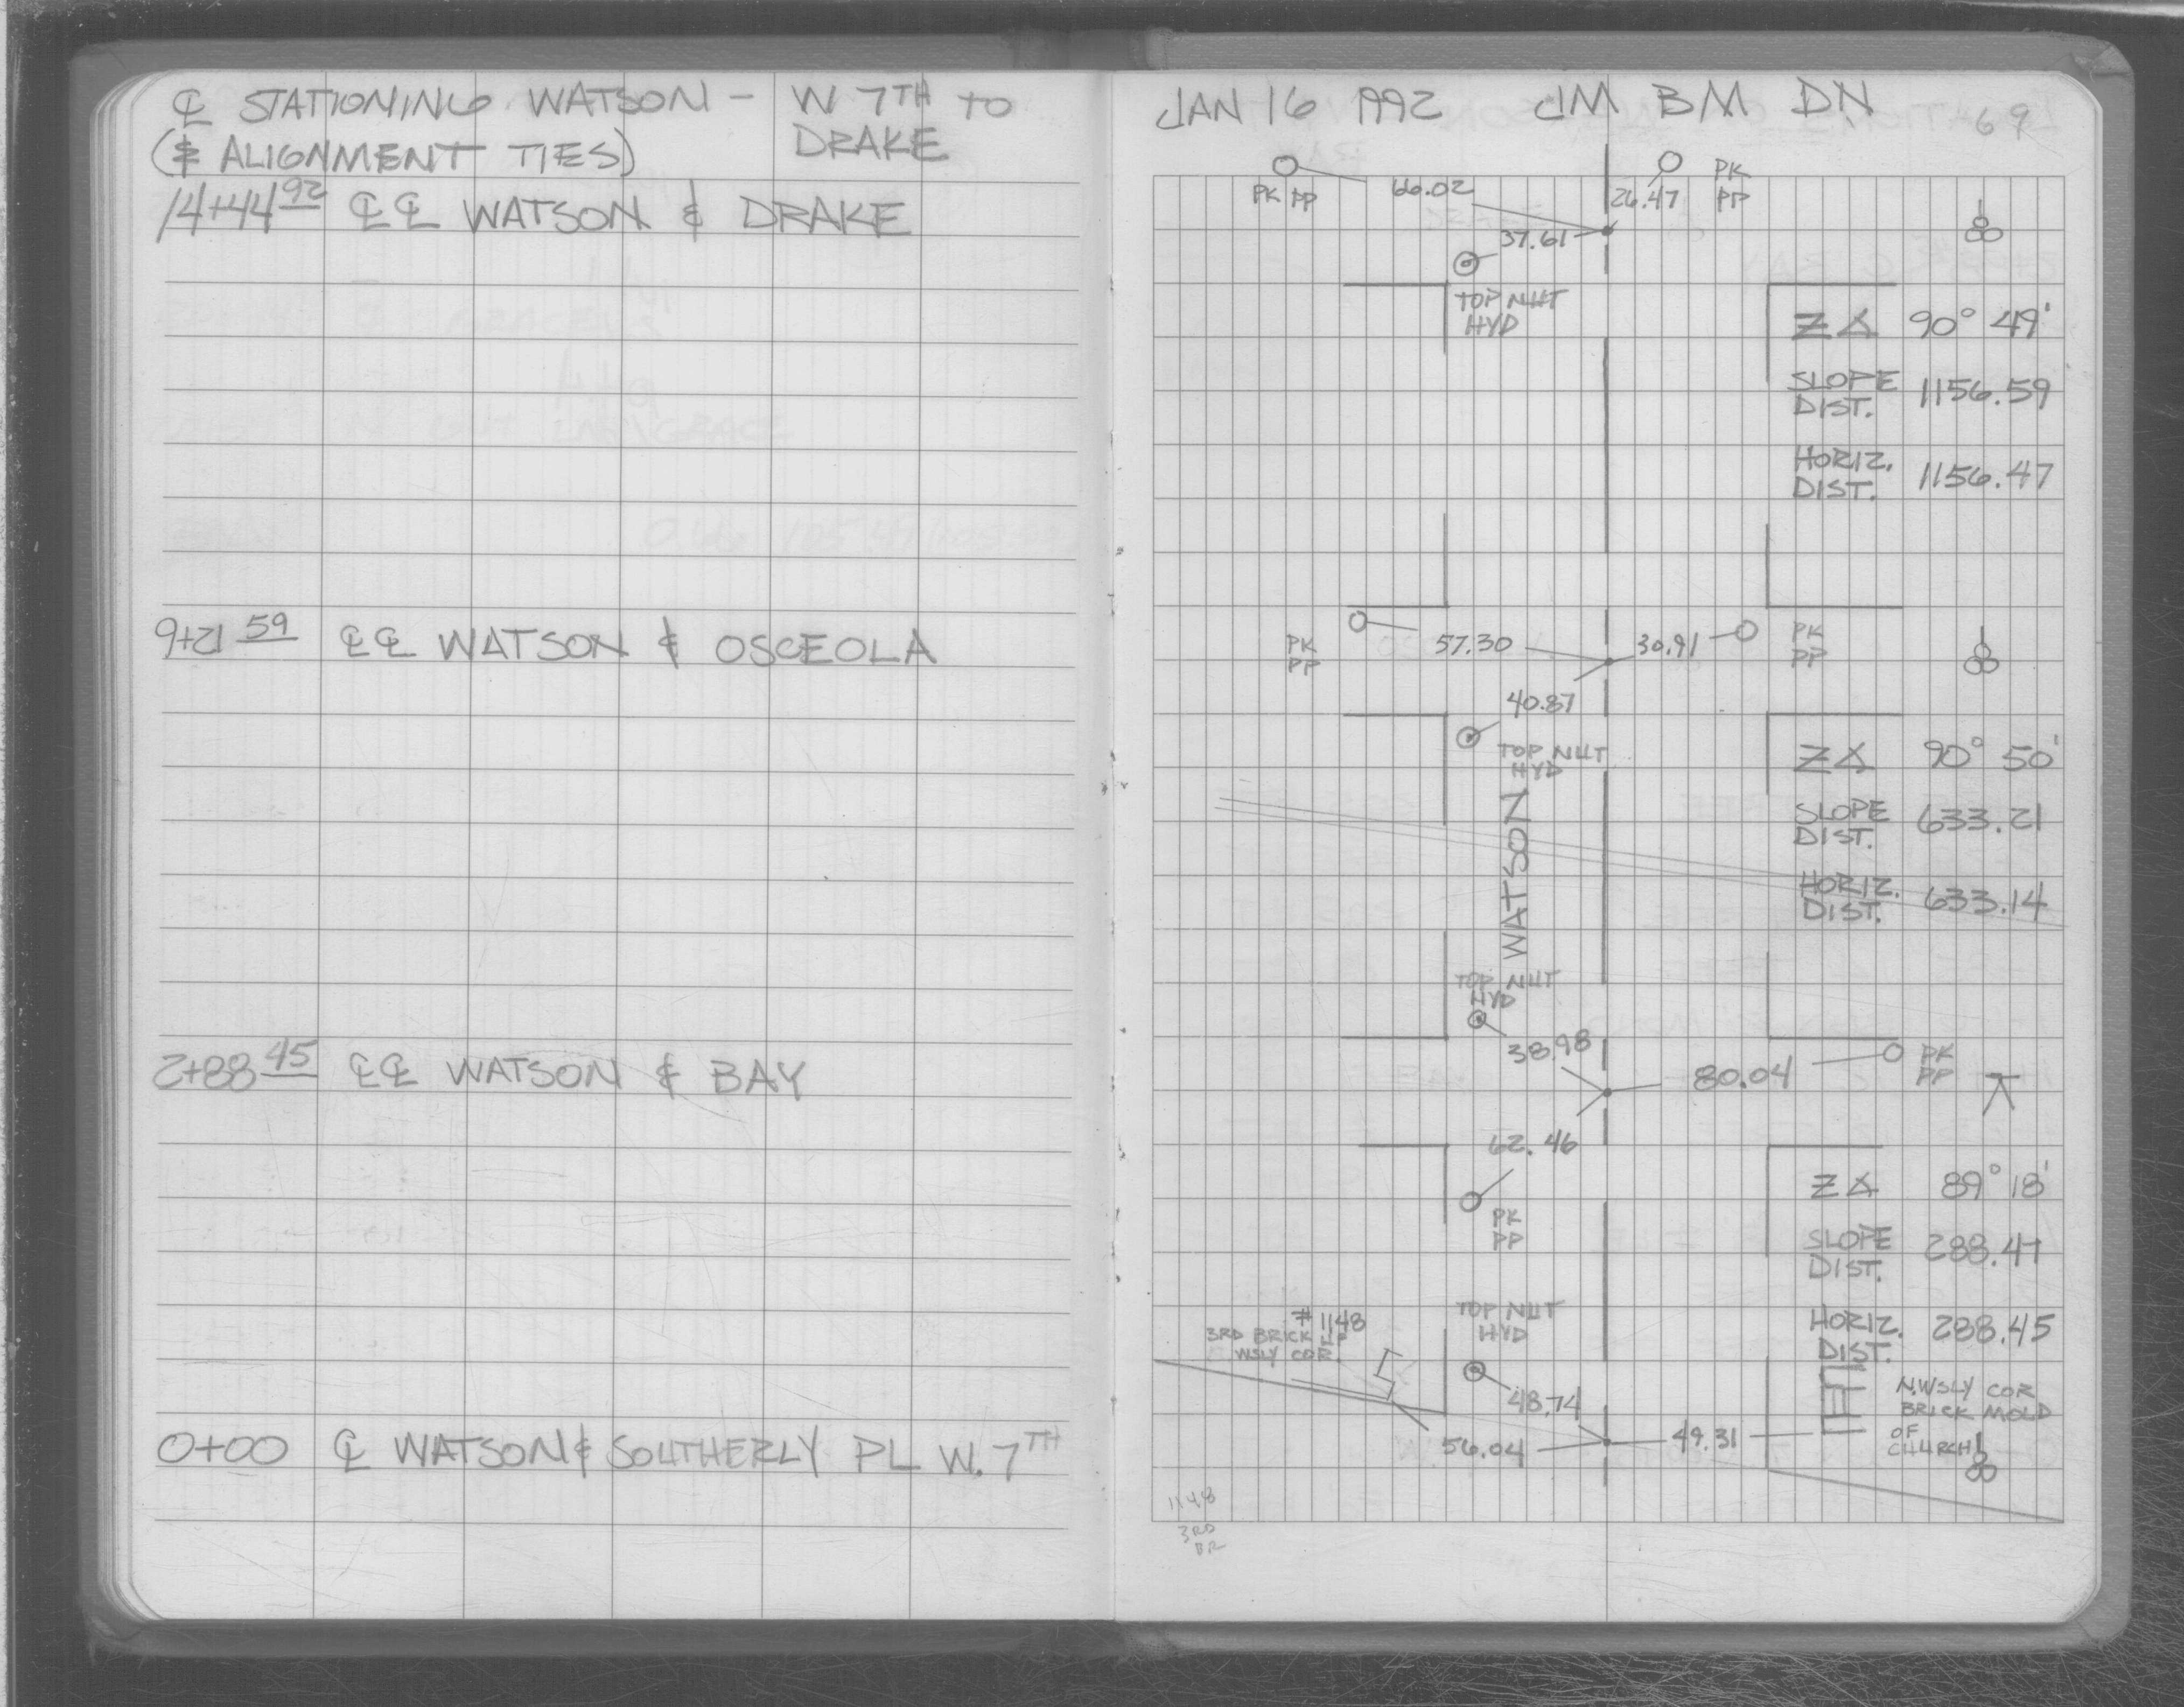 ℄ STATIONING WATSON - W 7TH TO
DRAKE
(& ALIGNMENT TIES)
14+44 92 ℄ ℄ WATSON & DRAKE
9+21 59 ℄ ℄ WATSON & OSCEOLA
2+88 45 ℄ ℄ WATSON & BAY
0+00 ℄ WATSON & SOUTHERLY PL W. 7TH
JAN 16 1992 JM BM DN 69
PK PP 66.02 26.47 PK
PP
37.61
TOP NUT
HYD
Z∡ 90° 49'
SLOPE
DIST. 1156.59
HORIZ.
DIST. 1156.47
PK
PP 57.30 30.91 PK
PP
40.87
TOP NUT
HYD
Z∡ 90° 50'
SLOPE
DIST. 633.21
WATSON
HORIZ.
DIST. 633.14
TOP NUT
HYD
38.98
80.04 PK
PP
62.46
PK
PP
Z∡ 89° 18'
SLOPE
DIST. 288.47
HORIZ.
DIST. 288.45
#1148
3RD BRICK UP
WSLY COR.
TOP NUT
HYD
48.74
56.04 49.31
N.WSLY COR
BRICK MOLD
OF
CHURCH
1148
3RD
BR